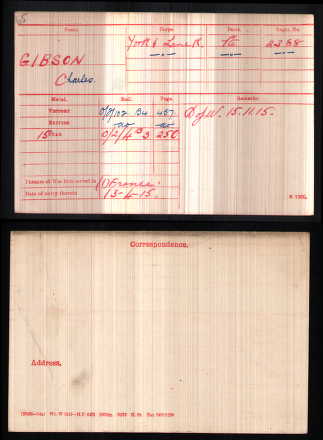 Name. Corps. Rank. Regtl. No.
GIBSON York & Lanc R. Pte 2388
Charles
Medal. Roll. Page. Remarks.
Victory 0/1/102 B4 457 D of W. 15.11.15.
British do do
15 Star 0/2/4 B3 256
Theatre of War first served in (1) France.
Date of entry therein 13-4-15.
K 1380.
Correspondence.
Address.